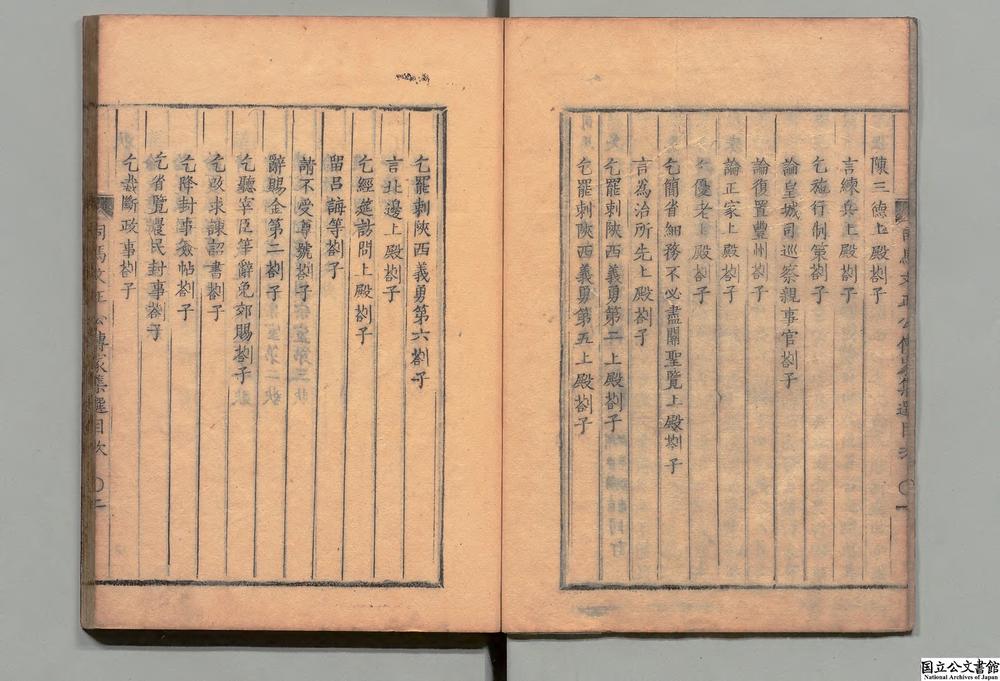 陳三德上殿劄子
言練兵上殿劄子
乞施行制策劄子
論皇城司巡察親事官劄子
論復置豐州劄子
論正家上殿劄子
乞優老上殿劄子
乞簡省細務不必盡關聖覽上殿劄子
言為治所先上殿劄子
乞罷刺陝西義勇第二上殿劄子
乞罷刺陝西義勇第五上殿劄子
乞罷刺陝西義勇第六劄子
言北邊上殿劄子
乞經筵訪問上殿劄子
留呂誨等劄子
請不受尊號劄子
辭賜金第二劄子
乞聽宰臣等辭免郊賜劄子
乞改求諫詔書劄子
乞降封事簽帖劄子
乞省覽農民封事劄子
乞裁斷政事劄子
司馬文正公傳家集選目次 〇二
国立公文書館
National Archives of Japan